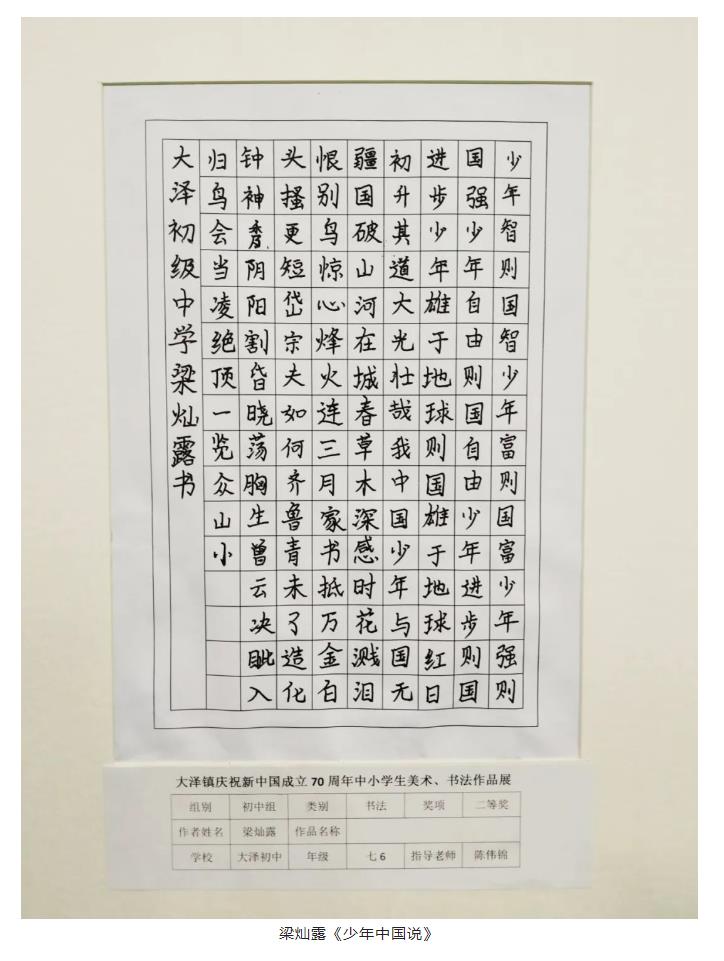 少年智则国智少年富则国富少年强则
国强少年自由则国自由少年进步则国
进步少年雄于地球则国雄于地球红日
初升其道大光壮哉我中国少年与国无
疆国破山河在城春草木深感时花溅泪
恨别鸟惊心烽火连三月家书抵万金白
头搔更短岱宗夫如何齐鲁青未了造化
钟神秀阴阳割昏晓荡胸生曾云决眦入
归鸟会当凌绝顶一览众山小
大泽初级中学梁灿露书
大泽镇庆祝新中国成立70周年中小学生美术、书法作品展
组别 初中组 类别 书法 奖项 二等奖
作者姓名 梁灿露 作品名称
学校 大泽初中 年级 七6 指导老师 陈伟锦
梁灿露《少年中国说》